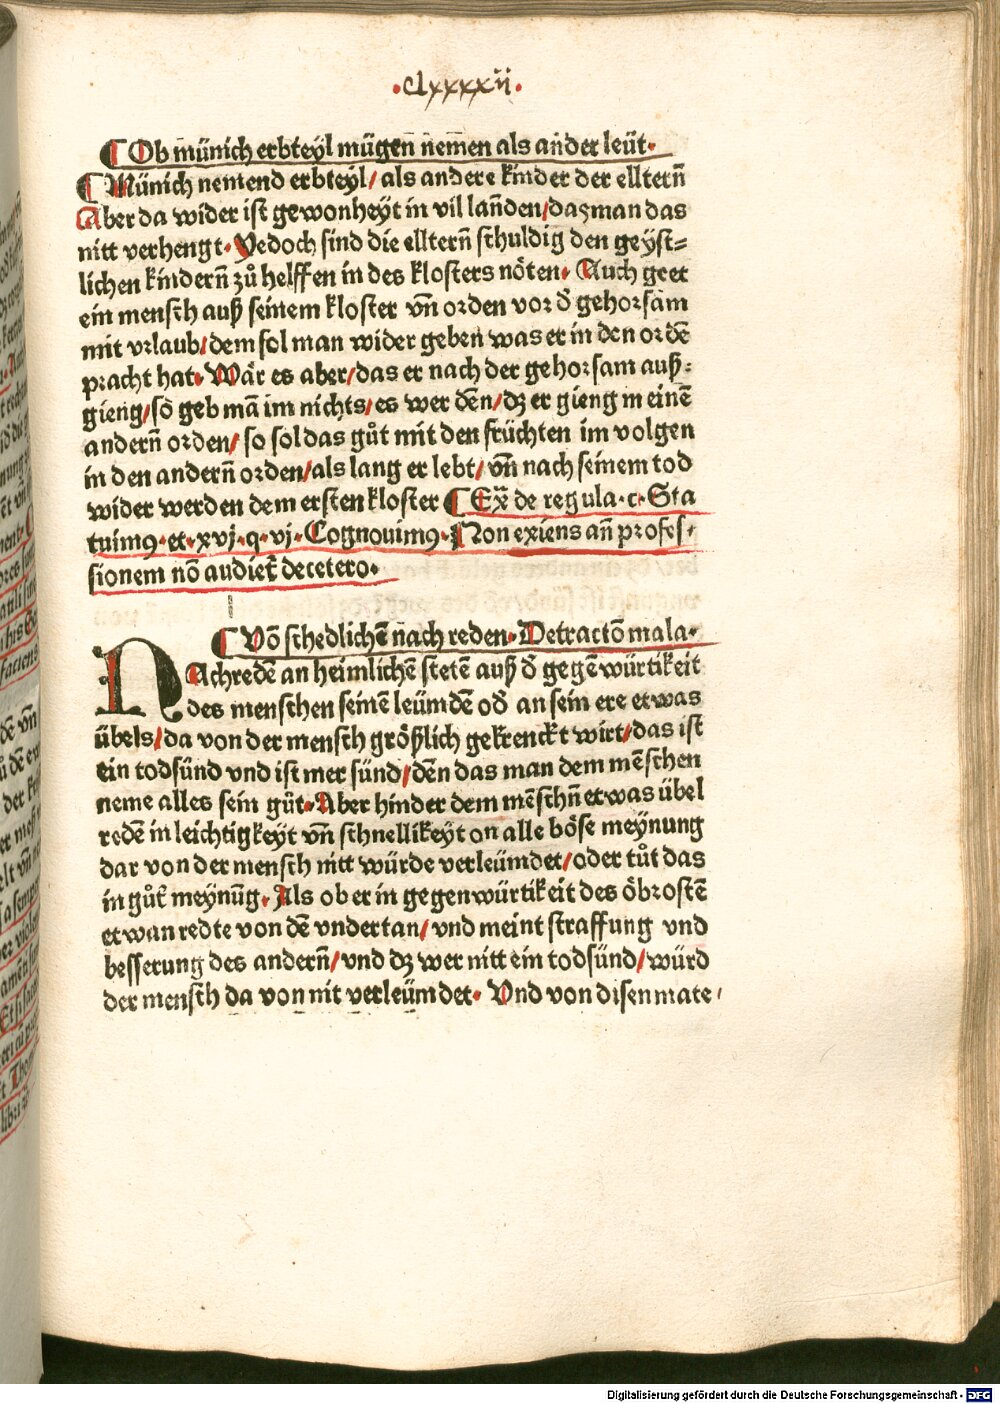 ·clxxxxii·
¶ Ob münich erbteyl mügen nemen als ander leüt·
¶ Münich nemend erbteyl/ als andere kinder der elltern̄
Aber da wider ist gewonheyt in vil lan̄den/daʒ man das
nitt verhengt· Yedoch sind die elltern̄ schuldig den geyst⸗
lichen kindern̄ zů helffen in des klosters nöten· Auch geet
ein mensch auß seinem kloster vn̄ orden vor d̄ gehorsam
mit vrlaub/dem sol man wider geben was er in den ordē
pracht hat· Wär es aber/das er nach der gehorsam auß:
gieng/so geb mā im nichts/es wer dēn/dʒ er gieng in einē
andern̄ orden/ so sol das gůt mit den früchten im volgen
in den andern̄ orden/als lang er lebt/ vn̄ nach seinem tod
wider werden dem ersten kloster ¶ Ex̄ de regula·c· Sta
tuimꝰ·et·xvj·q·vj· Cognouimꝰ· Non exiens an̄ profes⸗
sionem nō audiet̄ decetero·
¶ Vō schedlichē nach reden· Detractō mala·
NAchredē an heimlichē stetē auß d̄ gegēwürtikeit
des menschen seinē leümdē od̄ an sein ere etwas
übels/da von der mensch größlich gekrenckt wirt/das ist
ein todsünd vnd ist mer sünd/dēn das man dem mēschen
neme alles sein gůt· Aber hinder dem mēschn̄ etwas übel
redē in leichtigkeyt vn̄ schnellikeyt on alle böse meynung
dar von der mensch nitt würde verleümdet/oder tůt das
in gůt̄ meynūg· Als ob er in gegenwürtikeit des öbrostē
etwan redte von dē vndertan/ vnd meint straffung vnd
besserung des andern̄/vnd dʒ wer nitt ein todsünd/würd
der mensch da von nit verleümdet· Vnd von disen mate⸗
Digitalisierung gefördert durch die Deutsche Forschungsgemeinschaft - DFG